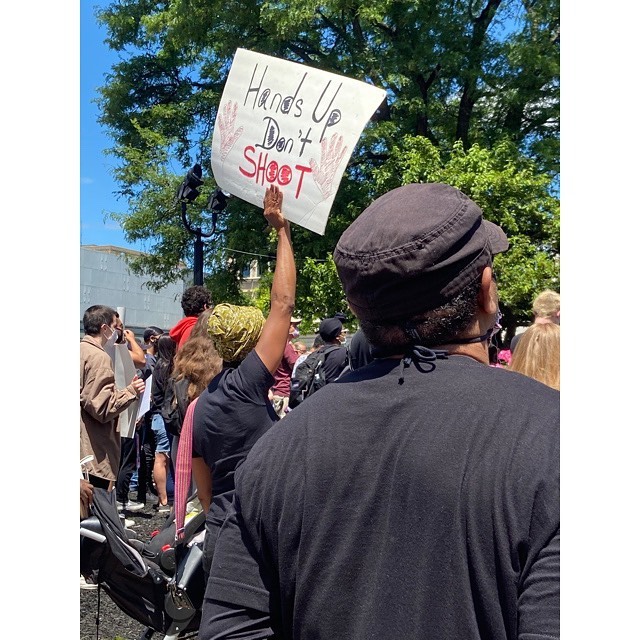 Hands Up
Don't
SHOOT